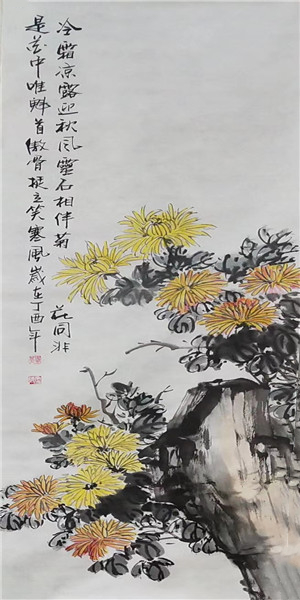 冷霜凉露迎秋风灵石相伴菊
花同非
是花中唯魁首傲骨挺立笑寒风岁在丁酉年